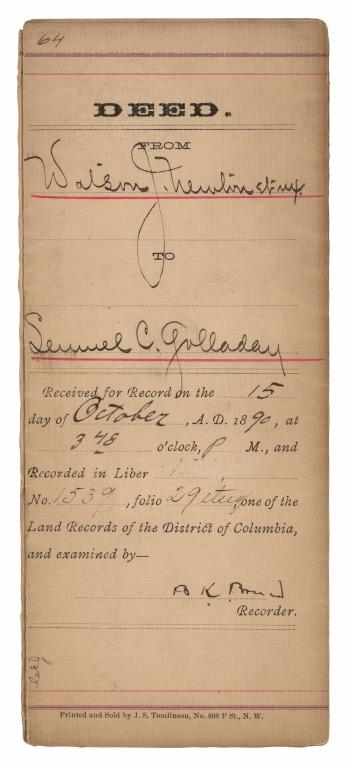 64
DEED.
FROM
Watson J. Newlin et ux.
TO
Lemuel C. Golladay
Received for Record on the 15
day of October, A. D. 1890, at
3 48 o'clock, P M., and
Recorded in Liber
No. 1539, folio 29 et seq, one of the
Land Records of the District of Columbia,
and examined by—
Recorder.
Printed and Sold by J. S. Tomlinson, No. 608 F St., N. W.